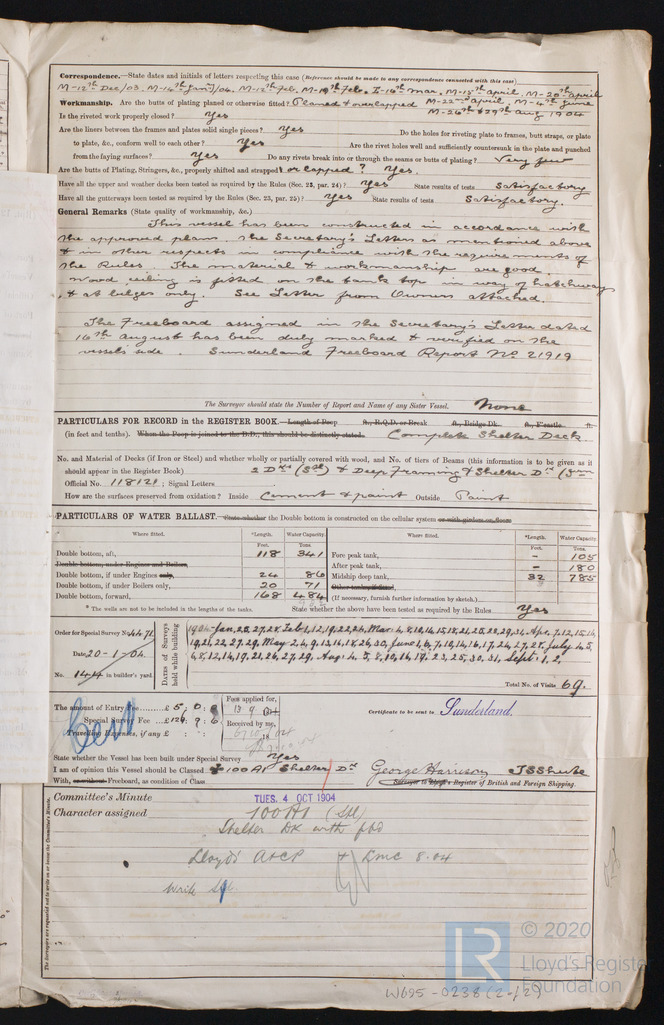 Correspondence.—State dates and initials of letters respecting this case (Reference should be made to any correspondence connected with this case)
M-12th Dec/03. M-14th Jany/04. M-12th Feb. M-19th Feb. I-16th Mar. M-15th April. M-20th April
Workmanship. Are the butts of plating planed or otherwise fitted? Planed & overlapped M-22nd April. M-4th June
Is the riveted work properly closed? Yes M-26th & 29th Aug 1904
Are the liners between the frames and plates solid single pieces? Yes Do the holes for riveting plate to frames, butt straps, or plate
to plate, &c., conform well to each other? Yes Are the rivet holes well and sufficiently countersunk in the plate and punched
from the faying surfaces? Yes Do any rivets break into or through the seams or butts of plating? Very few
Are the butts of Plating, Stringers, &c., properly shifted and strapped or lapped? Yes.
Have all the upper and weather decks been tested as required by the Rules (Sec. 22, par. 24)? Yes State results of tests Satisfactory
Have all the gutterways been tested as required by the Rules (Sec. 23, par. 25)? Yes State results of tests Satisfactory.
General Remarks (State quality of workmanship, &c.)
This vessel has been constructed in accordance with
the approved plans, the Secretary's Letters as mentioned above
& in other respects in compliance with the requirements of
the Rules. The material & workmanship are good.
Wood ceiling is fitted on the tank top in way of hatchways
& at bilges only. See Letter from Owners attached.
The Freeboard assigned in the Secretary's Letter dated
16th August has been duly marked & verified on the
vessels side. Sunderland Freeboard Report No 21919
The Surveyor should state the Number of Report and Name of any Sister Vessel. None
PARTICULARS FOR RECORD in the REGISTER BOOK.—Length of Poop ft., R.Q.D. or Break ft., Bridge Dk. ft., F'castle ft.
(in feet and tenths). When the Poop is joined to the B.D., this should be distinctly stated. Complete Shelter Deck
No. and Material of Decks (if Iron or Steel) and whether wholly or partially covered with wood, and No. of tiers of Beams (this information is to be given as it
should appear in the Register Book) 2 Dks (Stl) & Deep Framing & Shelter Dk
Official No. 118121; Signal Letters
How are the surfaces preserved from oxidation? Inside Cement & paint Outside Paint
PARTICULARS OF WATER BALLAST.—State whether the Double bottom is constructed on the cellular system or with girders on floors
Where fitted. *Length. Water Capacity. Where fitted. *Length. Water Capacity.
Feet. Tons. Feet. Tons.
Double bottom, aft, 118 341 Fore peak tank, - 105
Double bottom, under Engines and Boilers, After peak tank, - 180
Double bottom, if under Engines only, 24 86 Midship deep tank, 32 785
Double bottom, if under Boilers only, 20 71 Other tanks, if fitted,
Double bottom, forward, 168 484 (If necessary, furnish further information by sketch.)
* The wells are not to be included in the lengths of the tanks. State whether the above have been tested as required by the Rules Yes
Order for Special Survey No. 4471.
Date 20-1-04.
No. 144 in builder's yard.
DATES of Surveys held while building
1904-Jan, 25, 27, 28, Feb. 1, 12, 19, 22, 26, Mar. 4, 8, 10, 14, 15, 18, 21, 25, 28, 29, 31, Apr. 7, 12, 15, 16,
19, 21, 22, 27, 29, May 2, 4, 9, 13, 16, 18, 26, 30, June 1, 6, 7, 10, 14, 16, 17, 24, 27, 28, July 4, 5,
6, 8, 12, 14, 19, 21, 26, 27, 29, Aug. 4, 5, 8, 10, 16, 19, 23, 25, 30, 31, Sept. 1, 2,
Total No. of Visits 69.
The amount of Entry £5 : 0 : 0 Fees applied for, Certificate to be sent to Sunderland.
Special Survey Fee £129 : 9 : 6 13 9 04
Travelling Expenses, if any £ : : Received by me,
Cert
State whether the Vessel has been built under Special Survey Yes
I am of opinion this Vessel should be Classed 100A1 Shelter Dk George Harrison
With, or without Freeboard, as condition of Class. Surveyor to Lloyd's Register of British and Foreign Shipping.
Committee's Minute TUES. 4 OCT 1904
Character assigned 100A1 (Stl)
Shelter Dk with fbd
Lloyd's A&CP + LMC 8.04
The Surveyors are requested not to write on or below the Committee's Minute.
W695-0238 (2-/2)
© 2020
LR
Lloyd's Register
Foundation